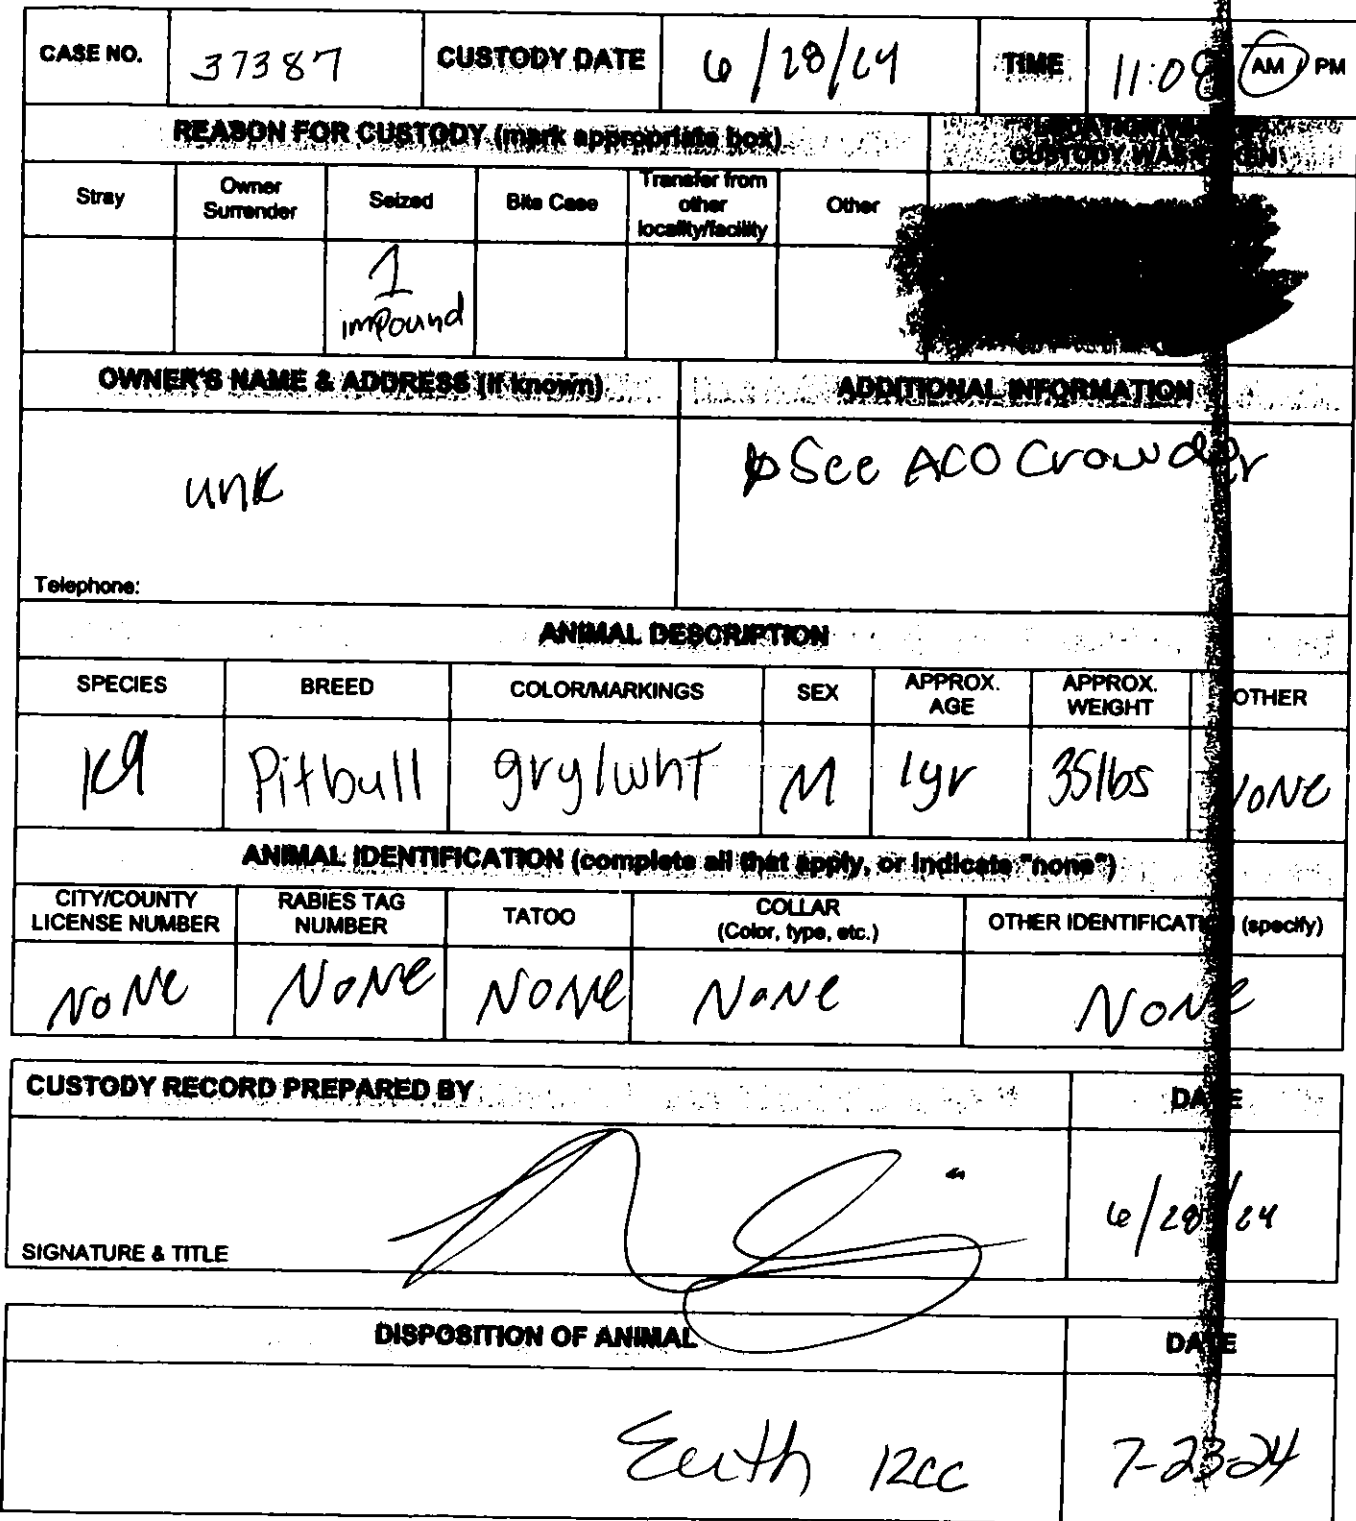 CASE NO. 37387 CUSTODY DATE 6/28/24 TIME 11:08 AM / PM
REASON FOR CUSTODY (mark appropriate box)
CUSTODY WAS TAKEN
Stray Owner Surrender Seized Bite Case Transfer from other locality/facility Other
1
impound
OWNER'S NAME & ADDRESS (if known) ADDITIONAL INFORMATION
unk See ACO Crowder
Telephone:
ANIMAL DESCRIPTION
SPECIES BREED COLOR/MARKINGS SEX APPROX. AGE APPROX. WEIGHT OTHER
K9 Pitbull gry/wht M 1yr 35lbs NONE
ANIMAL IDENTIFICATION (complete all that apply, or indicate "none")
CITY/COUNTY LICENSE NUMBER RABIES TAG NUMBER TATOO COLLAR (Color, type, etc.) OTHER IDENTIFICATION (specify)
NONE NONE NONE NONE NONE
CUSTODY RECORD PREPARED BY DATE
6/28/24
SIGNATURE & TITLE
DISPOSITION OF ANIMAL DATE
Euth 12cc 7-23-24